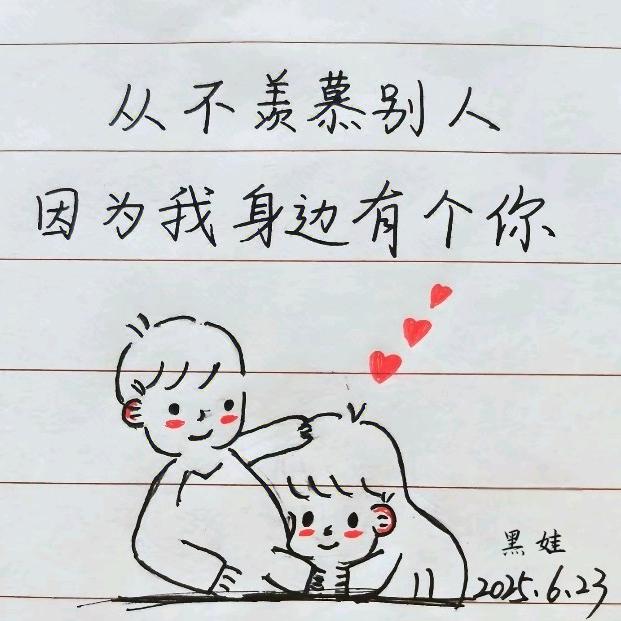 从不羡慕别人
因为我身边有个你
黑娃
2025.6.23